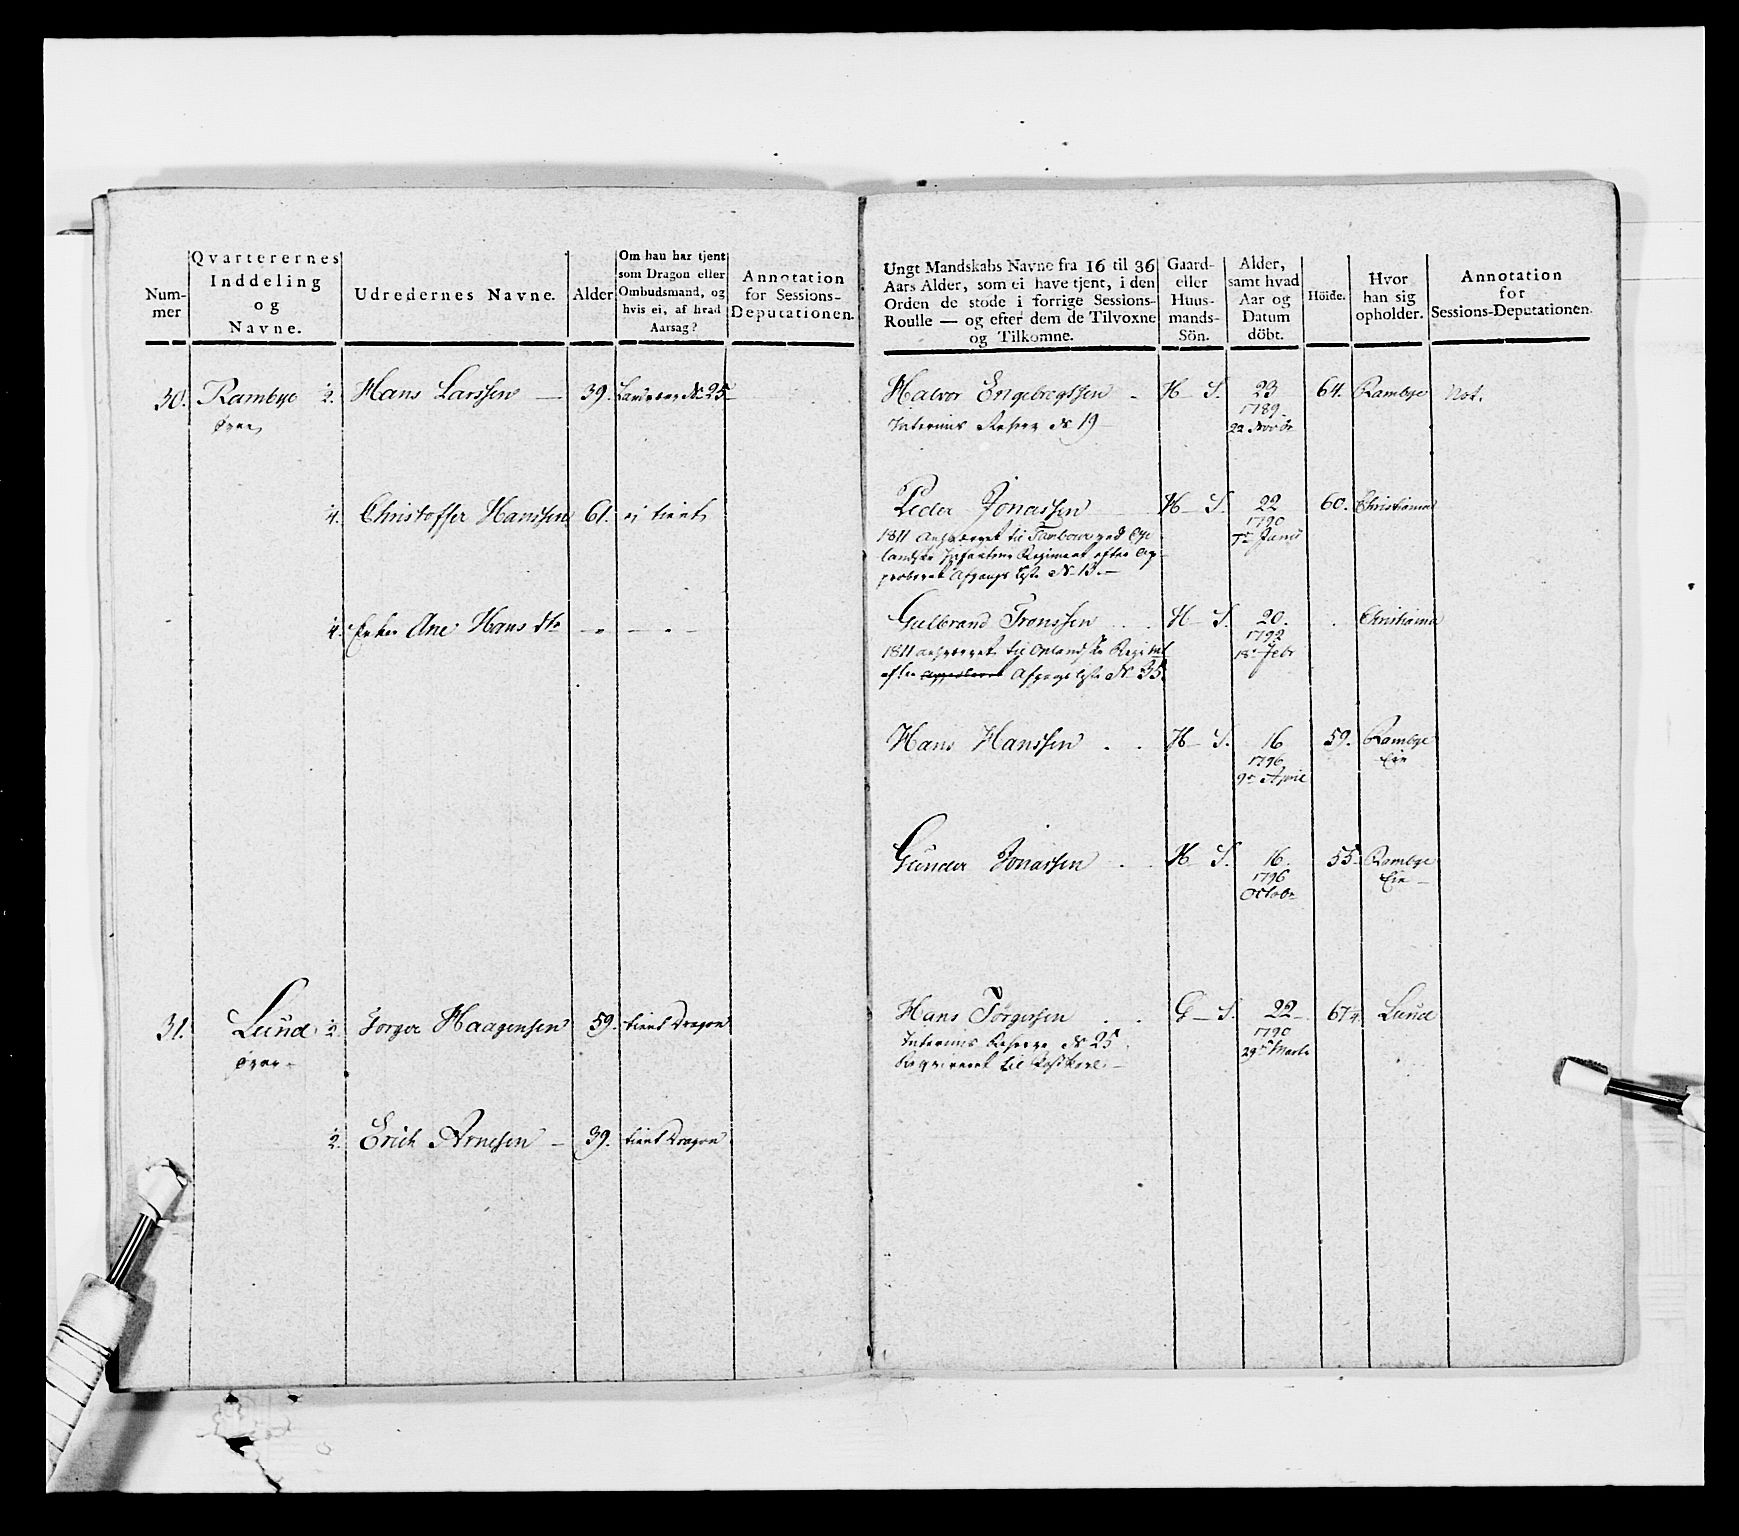 Num-
mer
Qvarterernes
Inddeling
og
Navne.
Udredernes Navne.
Alder
Om han har tjent
som Dragon eller
Ombudsmand, og
hvis ei, af hvad
Aarsag?
Annotation
for Sessions-
Deputationen.
30. Rambye 2. Hans Larssen — 39. No 25
4. Christoffer Hanssen 61. ej tient
4. Enke Ane Hans dtr
31. Lund 2. Jorger Haagensen 59. tient Dragon
2. Erich Arnesen — 39. tient Dragon
Ungt Mandskabs Navne fra 16 til 36
Aars Alder, som ei have tjent, i den
Orden de stode i forrige Sessions-
Roulle — og efter dem de Tilvoxne
og Tilkomne.
Gaard-
eller
Huus-
mands-
Sön.
Alder,
samt hvad
Aar og
Datum
döbt.
Höide.
Hvor
han sig
opholder.
Annotation
for
Sessions-Deputationen.
Halvor Engebregtsen H S. 23 64. Rambye Not.
1789
Interims Reserve No 19 22 Novbr
Peder Jonassen H S. 22 60. Christiania
1790
1811 til Tambour ved Op- 7de Junii
landske Infanterie Regiment efter Ap-
proberet Afgangs Liste No 13.
Gulbrand Tronssen H S. 20. Christiania
1792
1811 til Oplandske Regimt 18 Febr
efter Afgangs Liste No 35.
Hans Hanssen H S. 16 59. Rambye
1796 Eie
9de April
Gunder Jonassen H S. 16. 55. Rambye
1796 Eie
Octobr
Hans Jörgersen G S. 22 67 Lund
1790
Interims Reserve No 25 29de Marts
til Postkarl